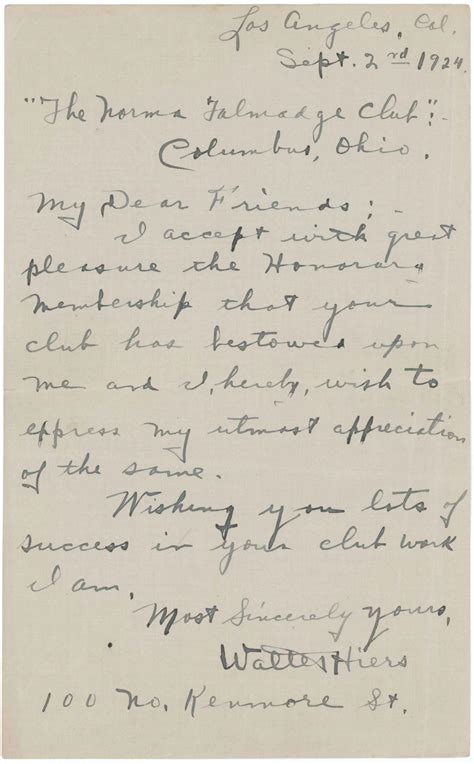 Los Angeles, Cal.
Sept. 2nd 1924.
"The Norma Talmadge Club":-
Columbus, Ohio.
My Dear Friends;-
I accept with great
pleasure the Honorary
membership that your
club has bestowed upon
me and I, hereby, wish to
express my utmost appreciation
of the same.
Wishing you lots of
success in your club work
I am,
Most Sincerely yours,
Walter Hiers
100 No. Kenmore St.